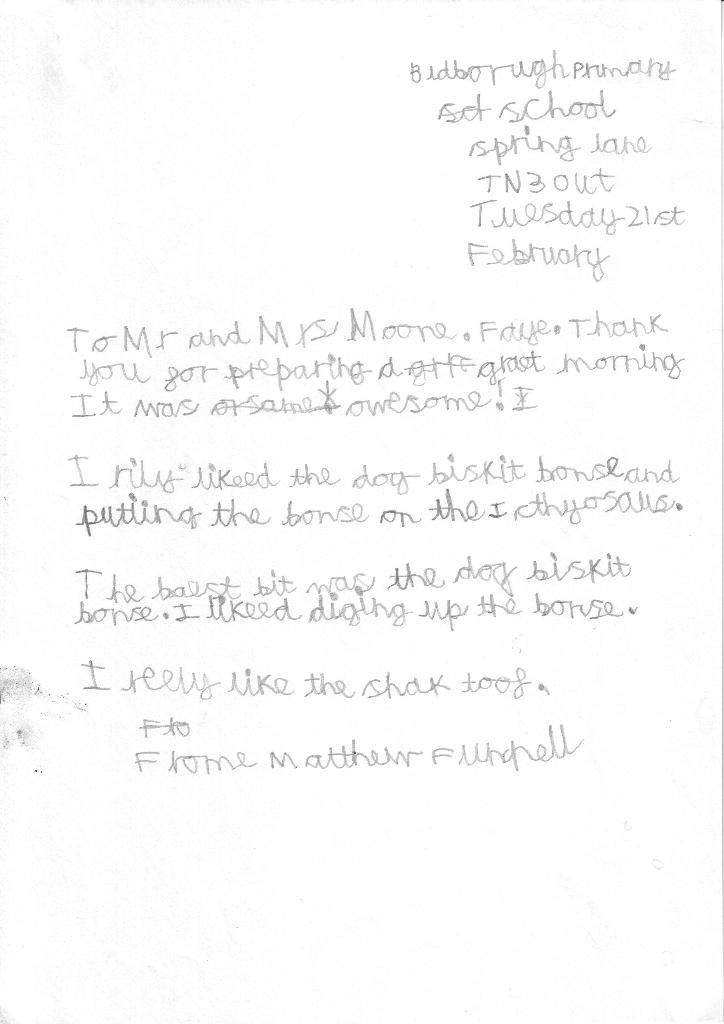 Bidborough Primary
sct school
spring lane
TN3 0UT
Tuesday 21st
February
To Mr and Mrs Moone. Faye. Thank
you for preparing a grat morning
It was orsame owesome! I
I rily likeed the dog biskit bonse and
putting the bonse on the Icthyosaus.
The baest bit was the dog biskit
bonse. I likeed diging up the bonse.
I reely like the shak toof.
F to
Frome Matthew Funnell